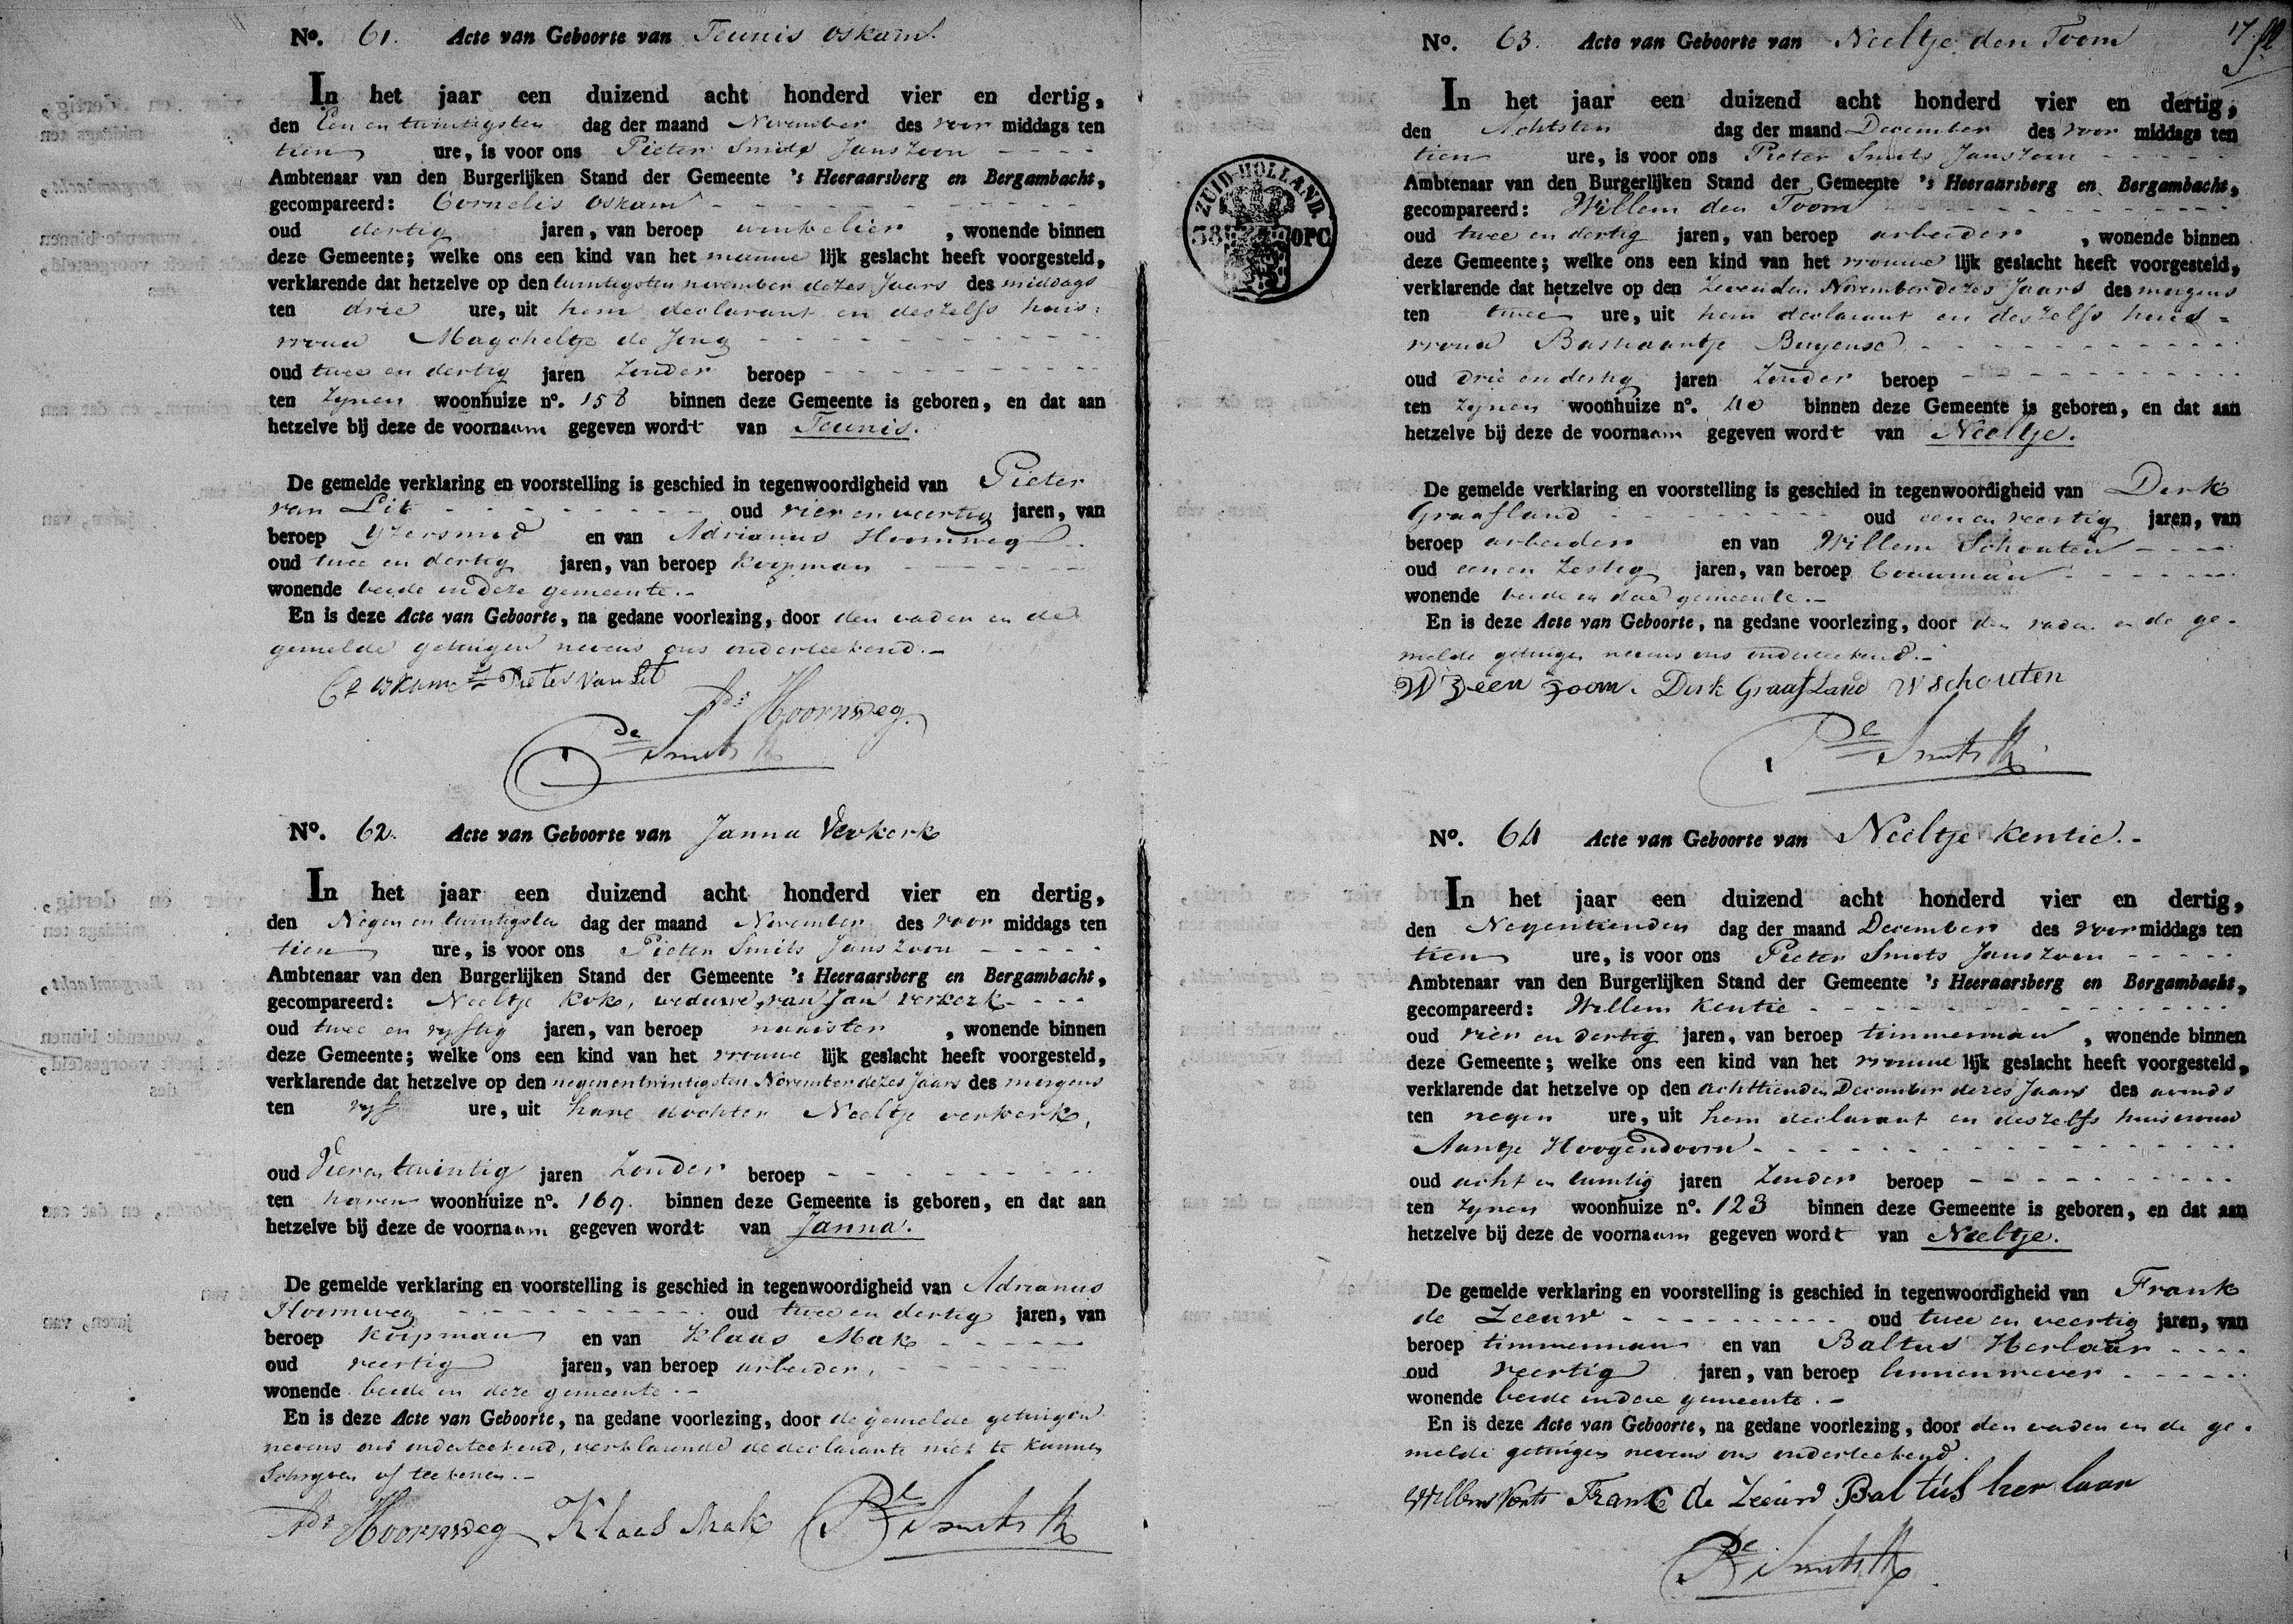 No. 61. Acte van Geboorte van Teunis Oskam.
In het jaar een duizend acht honderd vier en dertig,
den Een en twintigsten dag der maand November des voor middags ten
tien ure, is voor ons Pieter Smits Janszoon
Ambtenaar van den Burgerlijken Stand der Gemeente 's Heeraarsberg en Bergambacht,
gecompareerd: Cornelis Oskam
oud dertig jaren, van beroep winkelier, wonende binnen
deze Gemeente; welke ons een kind van het manne lijk geslacht heeft voorgesteld,
verklarende dat hetzelve op den twintigsten november dezes Jaars des middags
ten drie ure, uit hem declarant en deszelfs huis-
vrouw Magcheltje de Jong
oud twee en dertig jaren zonder beroep
ten zynen woonhuize no. 158 binnen deze Gemeente is geboren, en dat aan
hetzelve bij deze de voornaam gegeven wordt van Teunis.
De gemelde verklaring en voorstelling is geschied in tegenwoordigheid van Pieter
van Lit oud vier en veertig jaren, van
beroep Yzersmid en van Adrianus Hoornweg
oud twee en dertig jaren, van beroep koopman
wonende beide in deze gemeente.
En is deze Acte van Geboorte, na gedane voorlezing, door den vader en de
gemelde getuigen nevens ons onderteekend.
Cs oskam Pieter van Lit
Ads Hoornweg.
Pe Smits
No. 62. Acte van Geboorte van Janna Verkerk
In het jaar een duizend acht honderd vier en dertig,
den Negen en twintigsten dag der maand November des voor middags ten
tien ure, is voor ons Pieter Smits Janszoon
Ambtenaar van den Burgerlijken Stand der Gemeente 's Heeraarsberg en Bergambacht,
gecompareerd: Neeltje Kok, weduwe van Jan Verkerk
oud twee en vyftig jaren, van beroep naaister, wonende binnen
deze Gemeente; welke ons een kind van het vrouwe lijk geslacht heeft voorgesteld,
verklarende dat hetzelve op den negenentwintigsten November dezes Jaars des morgens
ten vyf ure, uit hare dochter Neeltje verkerk,
oud Vieren twintig jaren zonder beroep
ten haren woonhuize no. 169. binnen deze Gemeente is geboren, en dat aan
hetzelve bij deze de voornaam gegeven wordt van Janna.
De gemelde verklaring en voorstelling is geschied in tegenwoordigheid van Adrianus
Hoornweg oud twee en dertig jaren, van
beroep koopman en van Klaas Mak
oud veertig jaren, van beroep arbeider,
wonende beide in deze gemeente.
En is deze Acte van Geboorte, na gedane voorlezing, door de gemelde getuigen
nevens ons onderteekend, verklarende de declarante niet te kunnen
Schryven of teekenen.
Ads Hoornweg Klaas Mak Pe Smits
No. 63. Acte van Geboorte van Neeltje den Toom 17
In het jaar een duizend acht honderd vier en dertig,
den Achtsten dag der maand December des voor middags ten
tien ure, is voor ons Pieter Smits Janszoon
Ambtenaar van den Burgerlijken Stand der Gemeente 's Heeraarsberg en Bergambacht,
gecompareerd: Willem den Toom
oud twee en dertig jaren, van beroep arbeider, wonende binnen
deze Gemeente; welke ons een kind van het vrouwe lijk geslacht heeft voorgesteld,
verklarende dat hetzelve op den Zevenden November dezes Jaars des morgens
ten twee ure, uit hem declarant en deszelfs huis-
vrouw Bastiaantje Buyense
oud drie en dertig jaren zonder beroep
ten zynen woonhuize no. 40 binnen deze Gemeente is geboren, en dat aan
hetzelve bij deze de voornaam gegeven wordt van Neeltje.
De gemelde verklaring en voorstelling is geschied in tegenwoordigheid van Dirk
Graafland oud een en veertig jaren, van
beroep arbeider en van Willem Schouten
oud een en zestig jaren, van beroep bouwman
wonende beide in deze gemeente.
En is deze Acte van Geboorte, na gedane voorlezing, door den vader en de ge-
melde getuigen nevens ons onderteekend.
W deen Zoom. Dirk Graafland W schouten
Pe Smits
ZUID-HOLLAND.
38 OPC
No. 64 Acte van Geboorte van Neeltje Kentie.
In het jaar een duizend acht honderd vier en dertig,
den Negentienden dag der maand December des voor middags ten
tien ure, is voor ons Pieter Smits Janszoon
Ambtenaar van den Burgerlijken Stand der Gemeente 's Heeraarsberg en Bergambacht,
gecompareerd: Willem Kentie
oud vier en dertig jaren, van beroep timmerman, wonende binnen
deze Gemeente; welke ons een kind van het vrouwe lijk geslacht heeft voorgesteld,
verklarende dat hetzelve op den achttienden December dezes Jaars des avonds
ten negen ure, uit hem declarant en deszelfs huisvrouw
Aantje Hoogendoorn
oud acht en twintig jaren zonder beroep
ten zynen woonhuize no. 123 binnen deze Gemeente is geboren, en dat aan
hetzelve bij deze de voornaam gegeven wordt van Neeltje.
De gemelde verklaring en voorstelling is geschied in tegenwoordigheid van Frank
de Zeeuw oud twee en veertig jaren, van
beroep timmerman en van Baltus Herlaar
oud veertig jaren, van beroep linnenwever
wonende beide in deze gemeente.
En is deze Acte van Geboorte, na gedane voorlezing, door den vader en de ge-
melde getuigen nevens ons onderteekend.
Willem Frank de Zeeuw Baltus her laar
Pe Smits